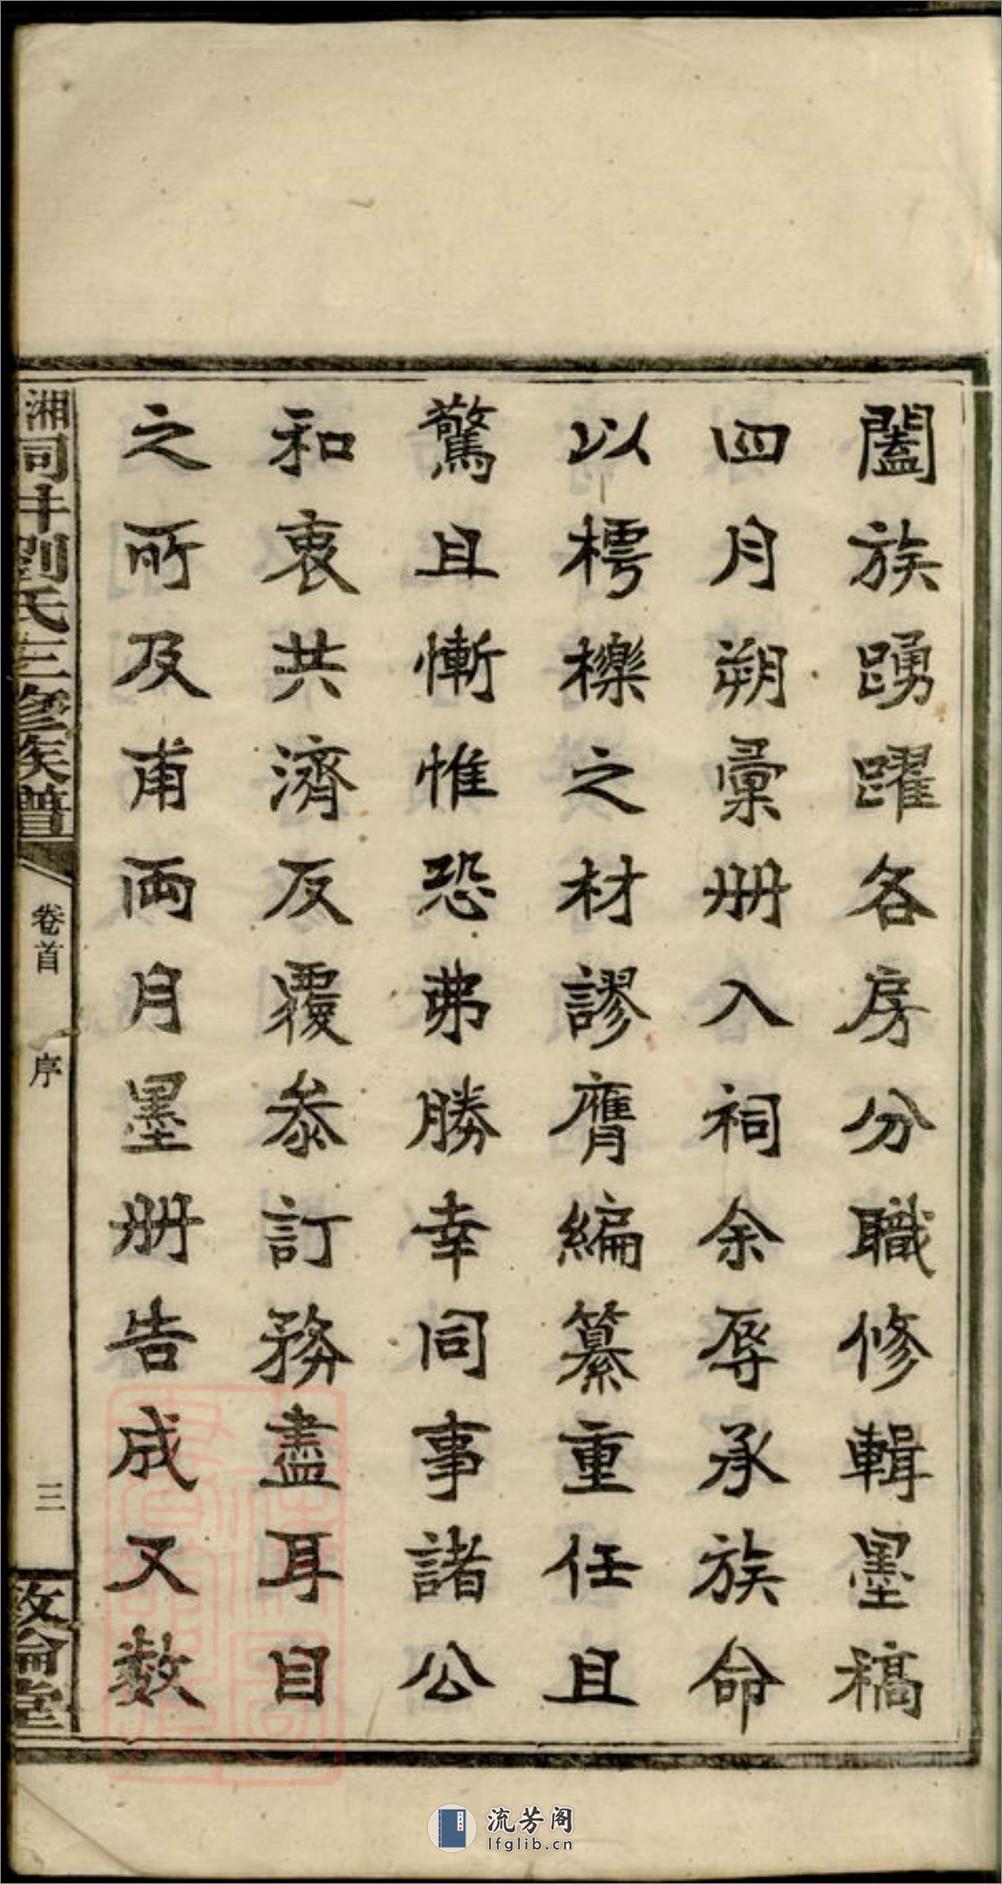 闔族踴躍各房分職修輯墨稿
四月朔彙册入祠余辱承族命
以樗櫟之材謬膺編纂重任且
驚且慚惟恐弗勝幸同事諸公
和衷共濟反覆叅訂務盡耳目
之所及甫兩月墨册告成又数
湘同井劉氏三修族譜
卷首
序
三
敦倫堂
流芳阁
lfglib.cn